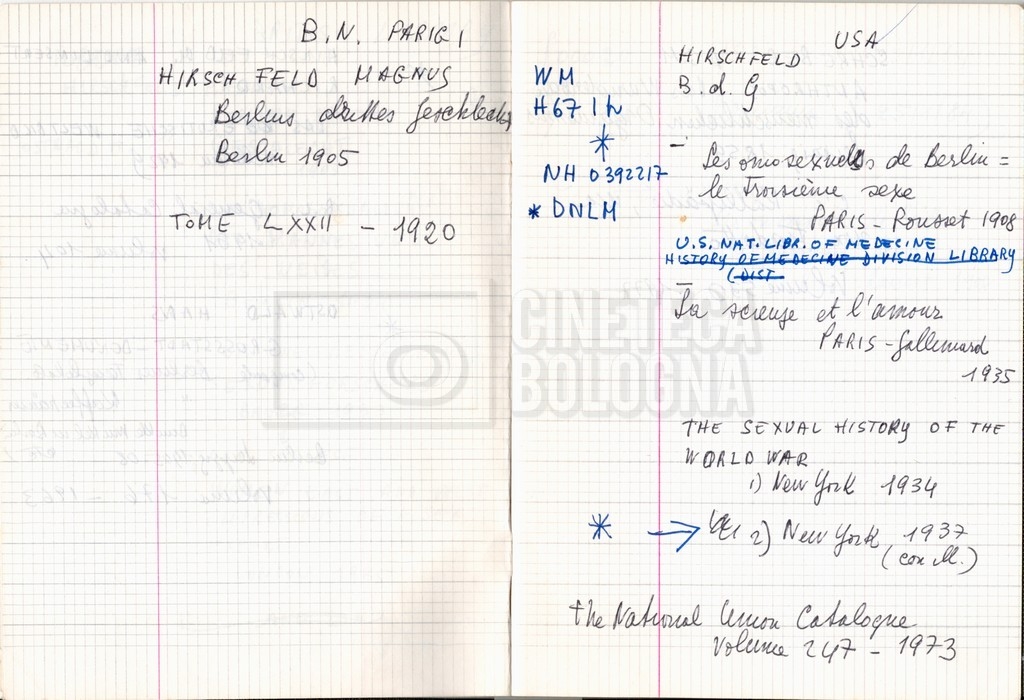 B.N. PARIGI
HIRSCHFELD MAGNUS
Berlins drittes Geschlecht
Berlin 1905
TOME LXXII - 1920
USA
HIRSCHFELD
B. d. G
WM
H671h
*
NH 0392217
* DNLM
- Les omosexuels de Berlin =
le Troisième sexe
PARIS - Rousset 1908
U.S. NAT. LIBR. OF MEDECINE
HISTORY OF MEDECINE DIVISION LIBRARY
(DIST
- La scienze et l'amour
PARIS - Gallimard
1935
THE SEXUAL HISTORY OF THE
WORLD WAR
1) New York 1934
* → 2) New York 1937
(con ill.)
the National Union Catalogue
Volume 247 - 1973
CINETECA
BOLOGNA